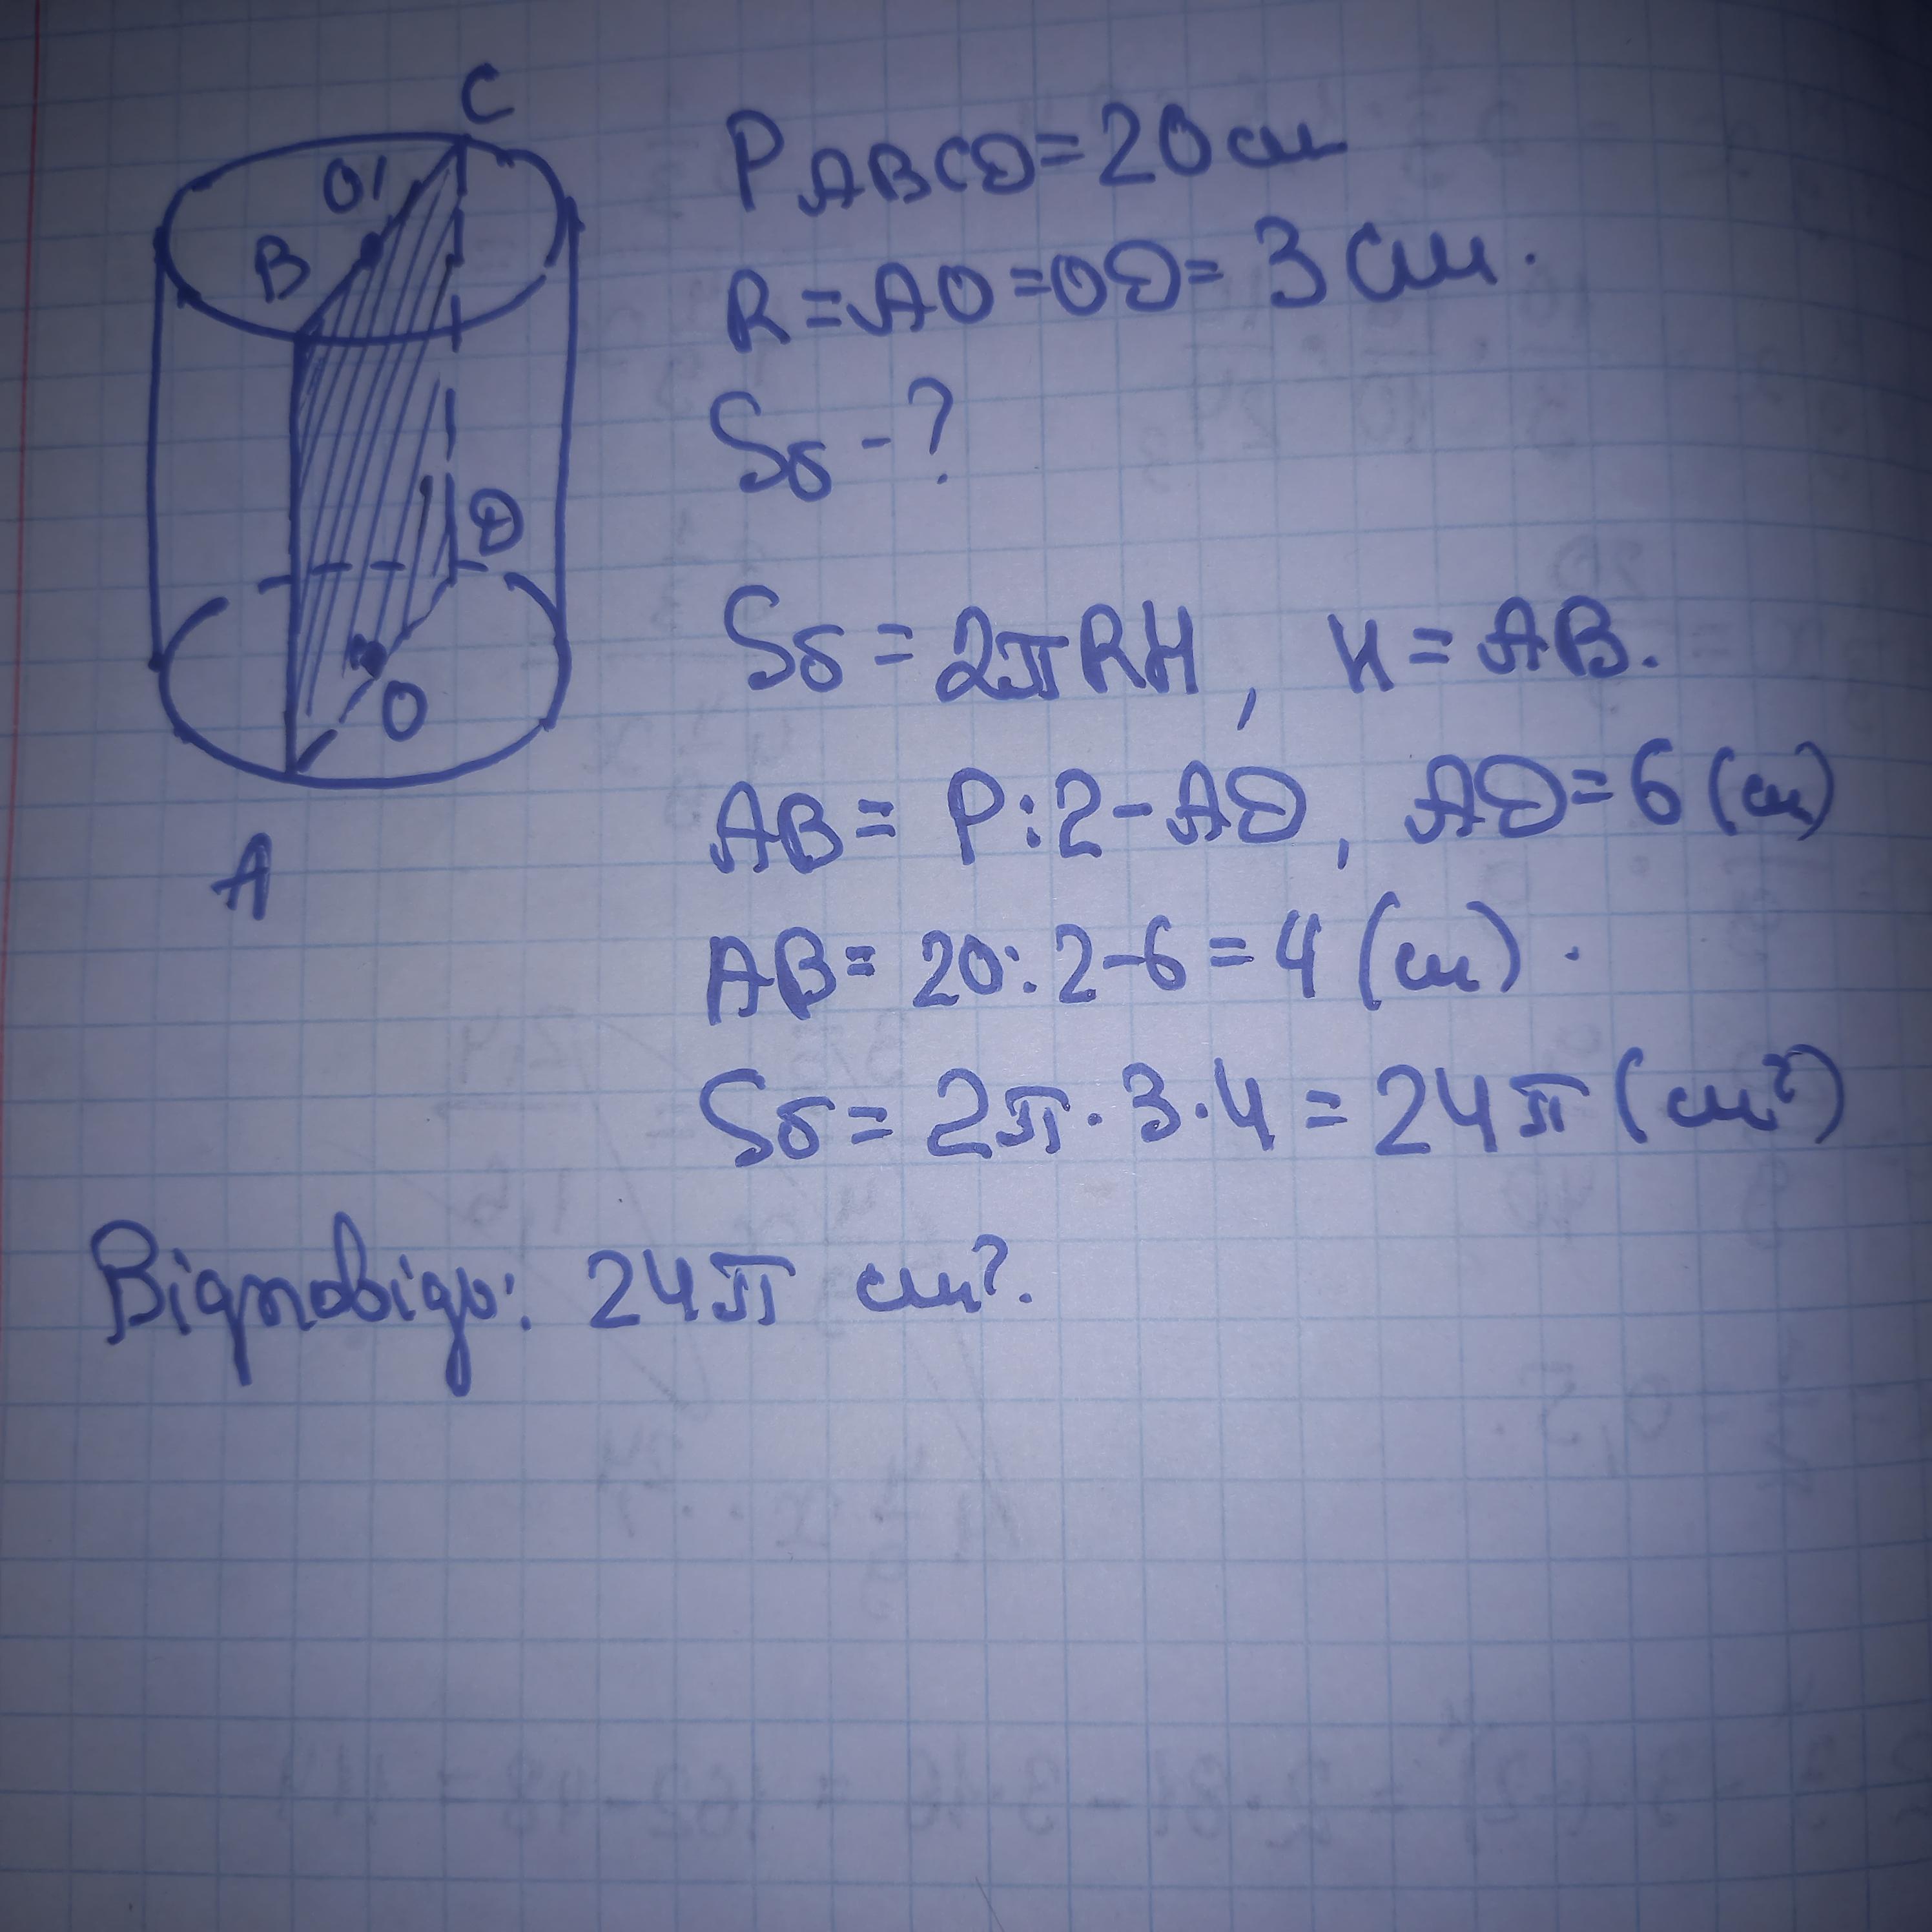 C
O1
B
D
O
A
P ABCD = 20 см
R = AO = OD = 3 см.
Sб - ?
Sб = 2πRH, H = AB.
AB = P:2 - AD, AD = 6 (см)
AB = 20:2-6 = 4 (см).
Sб = 2π·3·4 = 24π (см²)
Відповідь: 24π см².